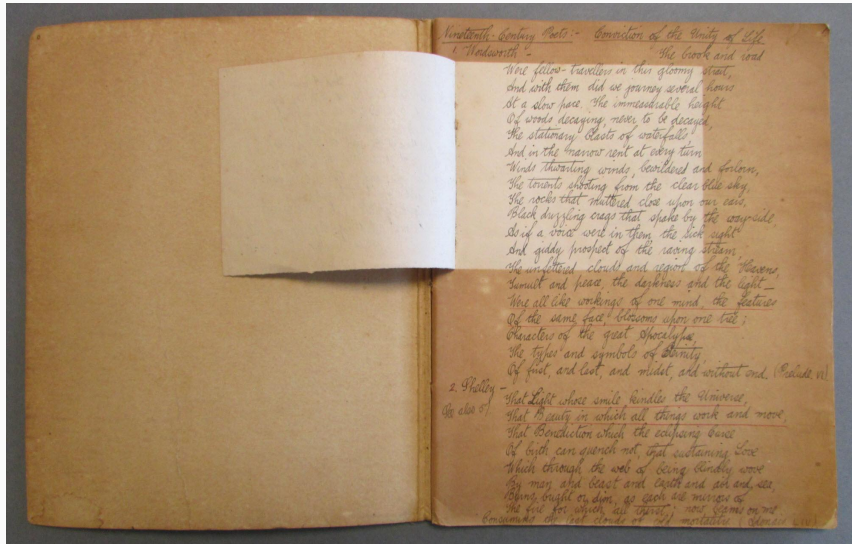 Nineteenth-Century Poets:- Conviction of the Unity of Life
1. Wordsworth - "The brook and road
Were fellow-travellers in this gloomy strait,
And with them did we journey several hours
At a slow pace. The immeasurable height
Of woods decaying, never to be decayed,
The stationary blasts of waterfalls
And in the narrow rent at every turn
Winds thwarting winds, bewildered and forlorn,
The torrents shooting from the clear blue sky,
The rocks that muttered close upon our ears,
Black drizzling crags that spake by the way-side,
As if a voice were in them, the sick sight
And giddy prospect of the raving stream,
The unfettered clouds and region of the Heavens,
Tumult and peace, the darkness and the light -
Were all like workings of one mind, the features
Of the same face, blossoms upon one tree;
Characters of the great Apocalypse,
The types and symbols of Eternity,
Of first, and last, and midst, and without end. (Prelude, VI)
2. Shelley -
That Light whose smile kindles the Universe,
See also
That Beauty in which all things work and move,
That Benediction which the eclipsing Curse
Of birth can quench not, that sustaining Love
Which through the web of being blindly wove
By man and beast and earth and air and sea,
Burns bright or dim, as each are mirrors of
The fire for which all thirst; now beams on me
Consuming the last clouds of cold mortality (Adonais